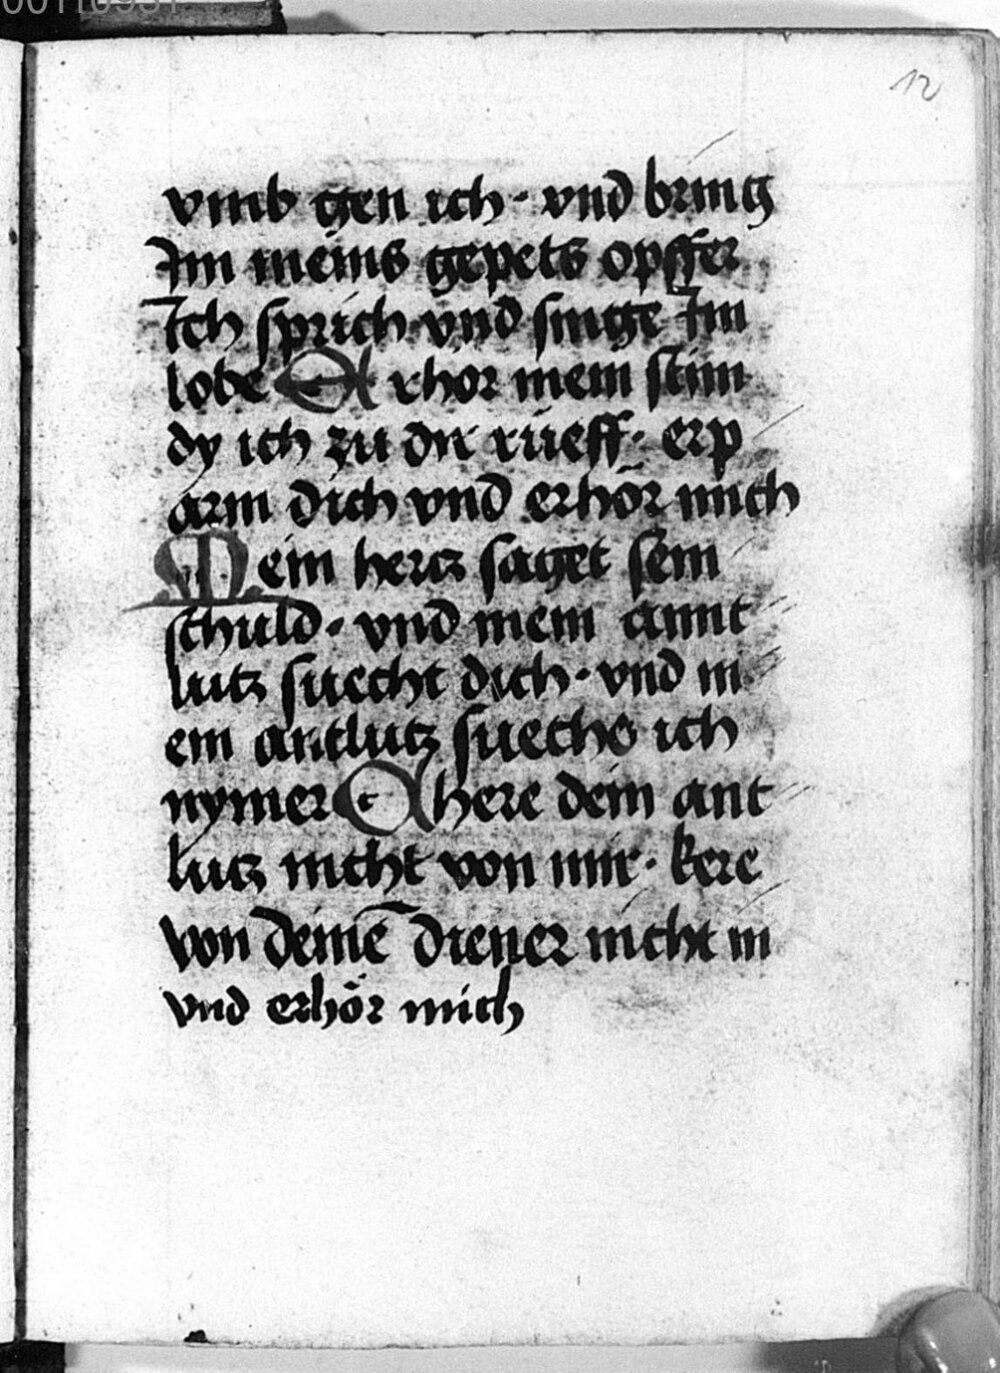 12
vmb gen ich · vnd bring
Im meins gepets opffer
Ich sprich vnd singe Im
lobe Erhor mein stim
dy ich zu dir rüeff · erp
arm dich vnd erhör mich
Mein hercz saget sein
schuld · vnd mein annt
lutz suecht dich · vnd m
ein antlutz suechs ich
nymer Chere dein ant
lucz nicht von mir · kere
von deinē diener nicht in
vnd erhör mich